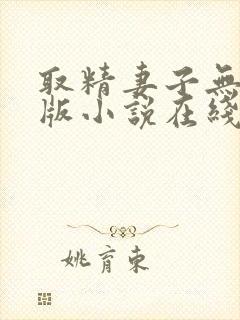 取精妻子無
版小説在綫
姚育東